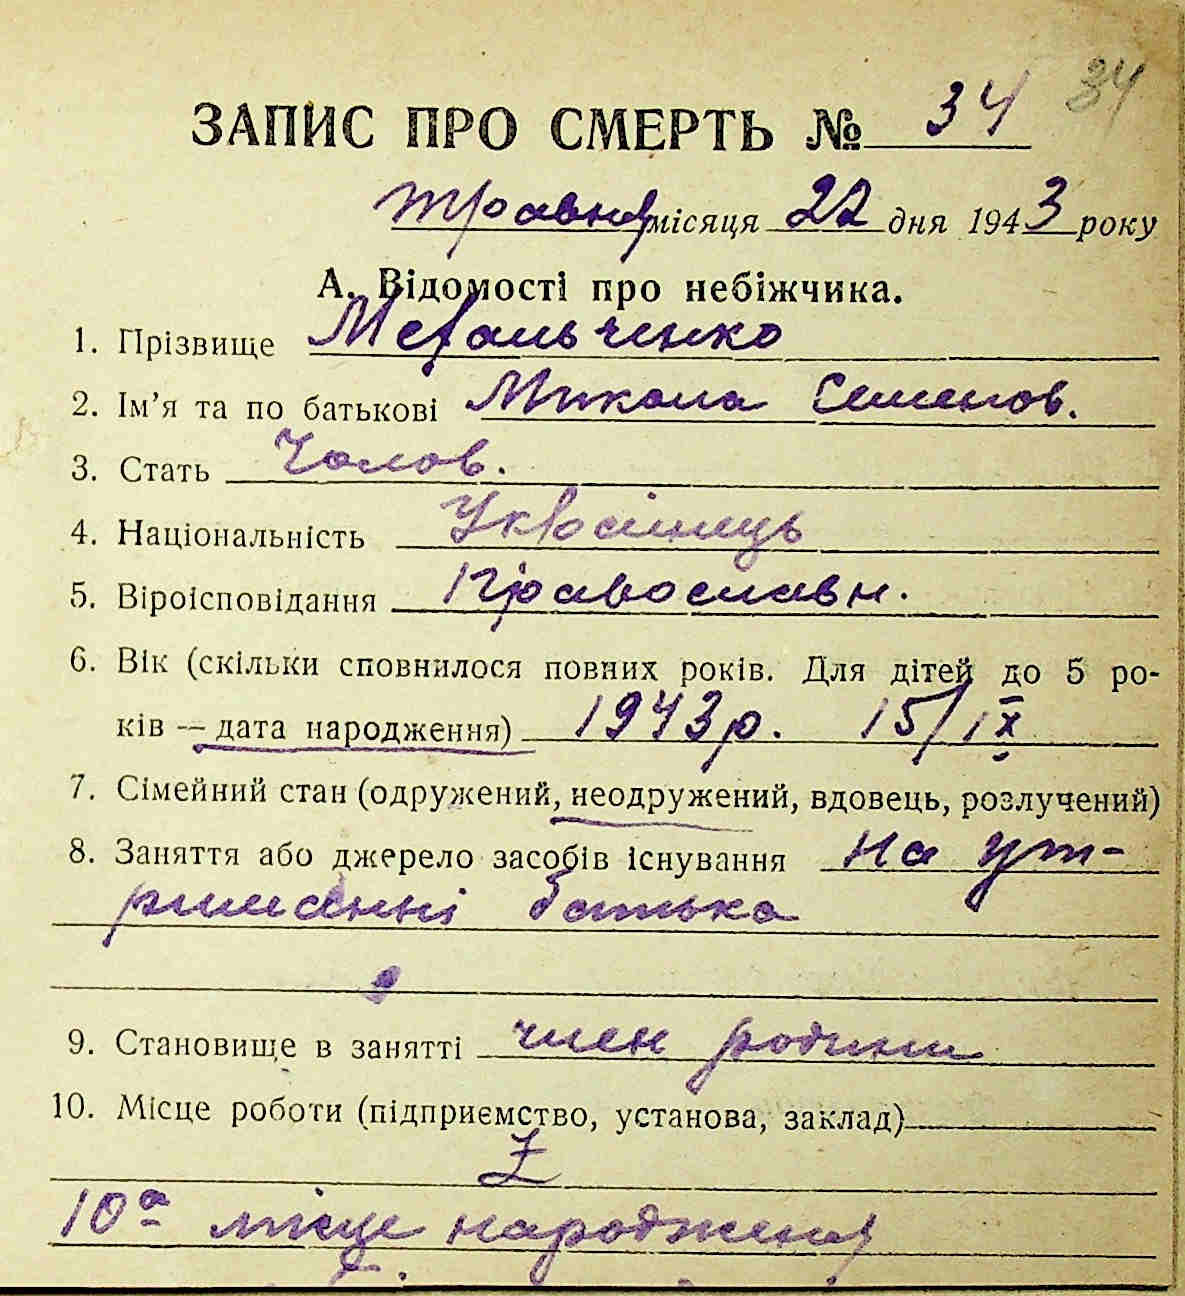 ЗАПИС ПРО СМЕРТЬ № 34 34
травня місяця 22 дня 1943 року
А. Відомості про небіжчика.
1. Прізвище
2. Ім’я та по батькові Микола Семенов.
3. Стать Чолов.
4. Національність Українець
5. Віроісповідання Православн.
6. Вік (скільки сповнилося повних років. Для дітей до 5 ро-
ків — дата народження) 1943р. 15/IX
7. Сімейний стан (одружений, неодружений, вдовець, розлучений)
8. Заняття або джерело засобів існування на ут-
риманні батька
9. Становище в занятті член родини
10. Місце роботи (підприємство, установа, заклад)
Z
10а місце народження